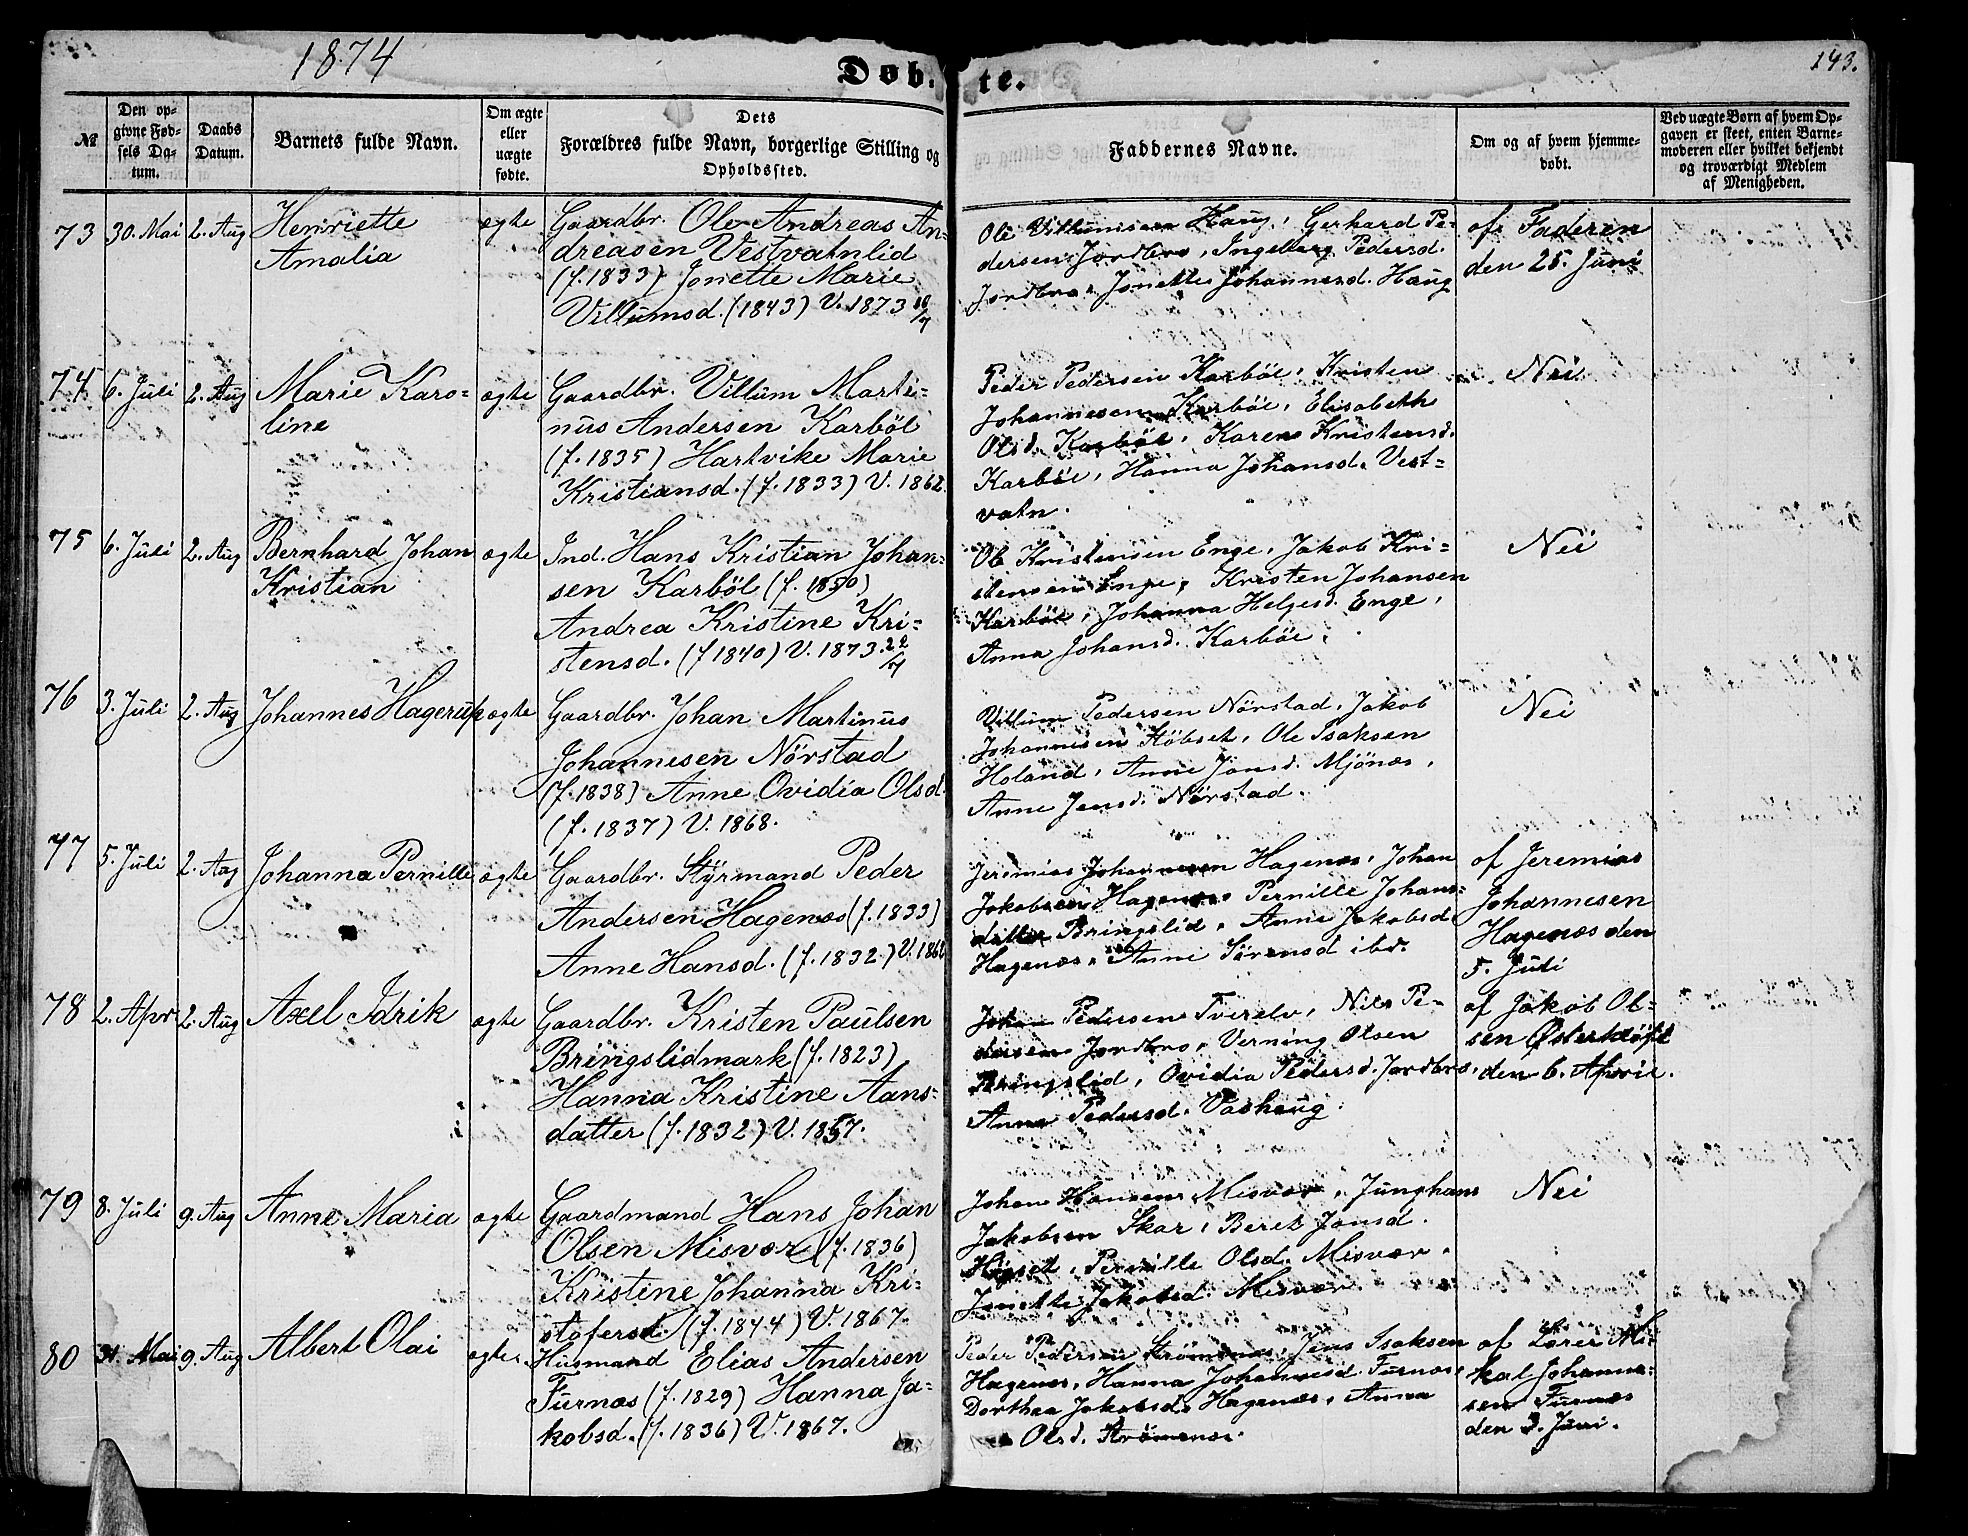 1874
Døbte.
143.
№
Den opgivne Fødsels Datum.
Daabs Datum.
Barnets fulde Navn.
Om ægte eller uægte fødte.
Dets Forældres fulde Navn, borgerlige Stilling og Opholdssted.
Faddernes Navne.
Om og af hvem hjemmedøbt.
Ved uægte Børn af hvem Opgaven er skeet, enten Barnemoderen eller hvilket bekjendt og troværdigt Medlem af Menigheden.
73 30. Mai 2. Aug Henriette
Amalia
ægte
Gaardbr. Ole Andreas An-
dreasen Vestvatnlid
(f. 1833) Jonette Marie
Villumsd. (1843) V. 1873 10/7
Ole Villumsen Haug, Gerhard Pe-
dersen Jordbro, Ingeborg Pedersd.
Jordbro, Jonette Johannesd. Haug
af Faderen
den 25. Juni
74 6. Juli 2. Aug Marie Karo-
line
ægte
Gaardbr. Villum Marti-
nus Andersen Karbøl
(f. 1835) Hartvike Marie
Kristiansd. (f. 1833) V. 1862.
Peder Pedersen Karbøl, Kristen
Johannesen Karbøl, Elisabeth
Olsd. Karbøl, Karen Kristensd.
Karbøl, Hanna Johansd. Vest-
vatn.
Nei
75 6. Juli 2. Aug Bernhard Johan
Kristian
ægte
Ind. Hans Kristian Johan-
sen Karbøl (f. 1850)
Andrea Kristine Kri-
stensd. (f 1840) V. 1873. 22/7
Ole Kristensen Enge, Jakob Kri-
stensen Enge, Kristen Johansen
Karbøl, Johanna Helgesd. Enge,
Anna Johansd. Karbøl.
Nei
76 3. Juli 2. Aug Johannes Hagerup
ægte
Gaardbr. Johan Martinus
Johannesen Nørstad
(f. 1838) Anne Ovidia Olsd.
(f. 1837) V. 1868.
Villum Pedersen Nørstad, Jakob
Johannesen Støbset, Ole Isaksen
Holand, Anne Jonsd. Mjønæs,
Anne Jensd. Nørstad.
Nei
77 5. Juli 2. Aug Johanna Pernille
ægte
Gaardbr. Styrmand Peder
Andersen Hagenæs (f. 1833)
Anne Hansd. (f. 1832) V. 186
Jeremias Johannesen Hagenæs, Johan
Jakobsen Hagenæs Pernille Johans-
datter Bringslid, Anne Jakobsd
Hagenæs, Anne Sørensd ibd.
af Jeremias
Johannesen
Hagenæs den
5. Juli
78 2. Apr 2. Aug Axel Idrik
ægte
Gaardbr. Kristen Paulsen
Bringslidmark (f. 1823)
Hanna Kristine Aans-
datter (f. 1832) V. 1857.
Johan Pedersen Tverelv, Nils Pe-
dersen Jordbro, Verning Olsen
Bringslid, Ovidia Pedersd. Jordbro,
Anna Pedersd. Vashaug.
af Jakob Ol-
sen Østerkløft
den 6. April.
79 8. Juli 9. Aug Anne Maria
ægte
Gaardmand Hans Johan
Olsen Misvær (f. 1836)
Kristine Johanna Kri-
stofersd. (f. 1844) V. 1867.
Johan Hansen Misvær, Junghans
Jakobsen Skar, Beret Jonsd.
Høgset, Pernille Olsd. Misvær,
Jonette Jakobsd. Misvær
Nei
80 31. Mai 9. Aug Albert Olai
ægte
Husmand Elias Andersen
Furnæs (f. 1829) Hanna Ja-
kobsd. (f. 1836) V. 1867.
Peder Pedersen Strømsnæs, Jens Isaksen
Hagenæs, Hanna Johannesd Furnæs
Dorthea Jakobsd. Hagenæs, Anna
Olsd. Strømsnæs.
af Lærer Mi-
kal Johanne-
sen Furnæs
den 3. Juni.